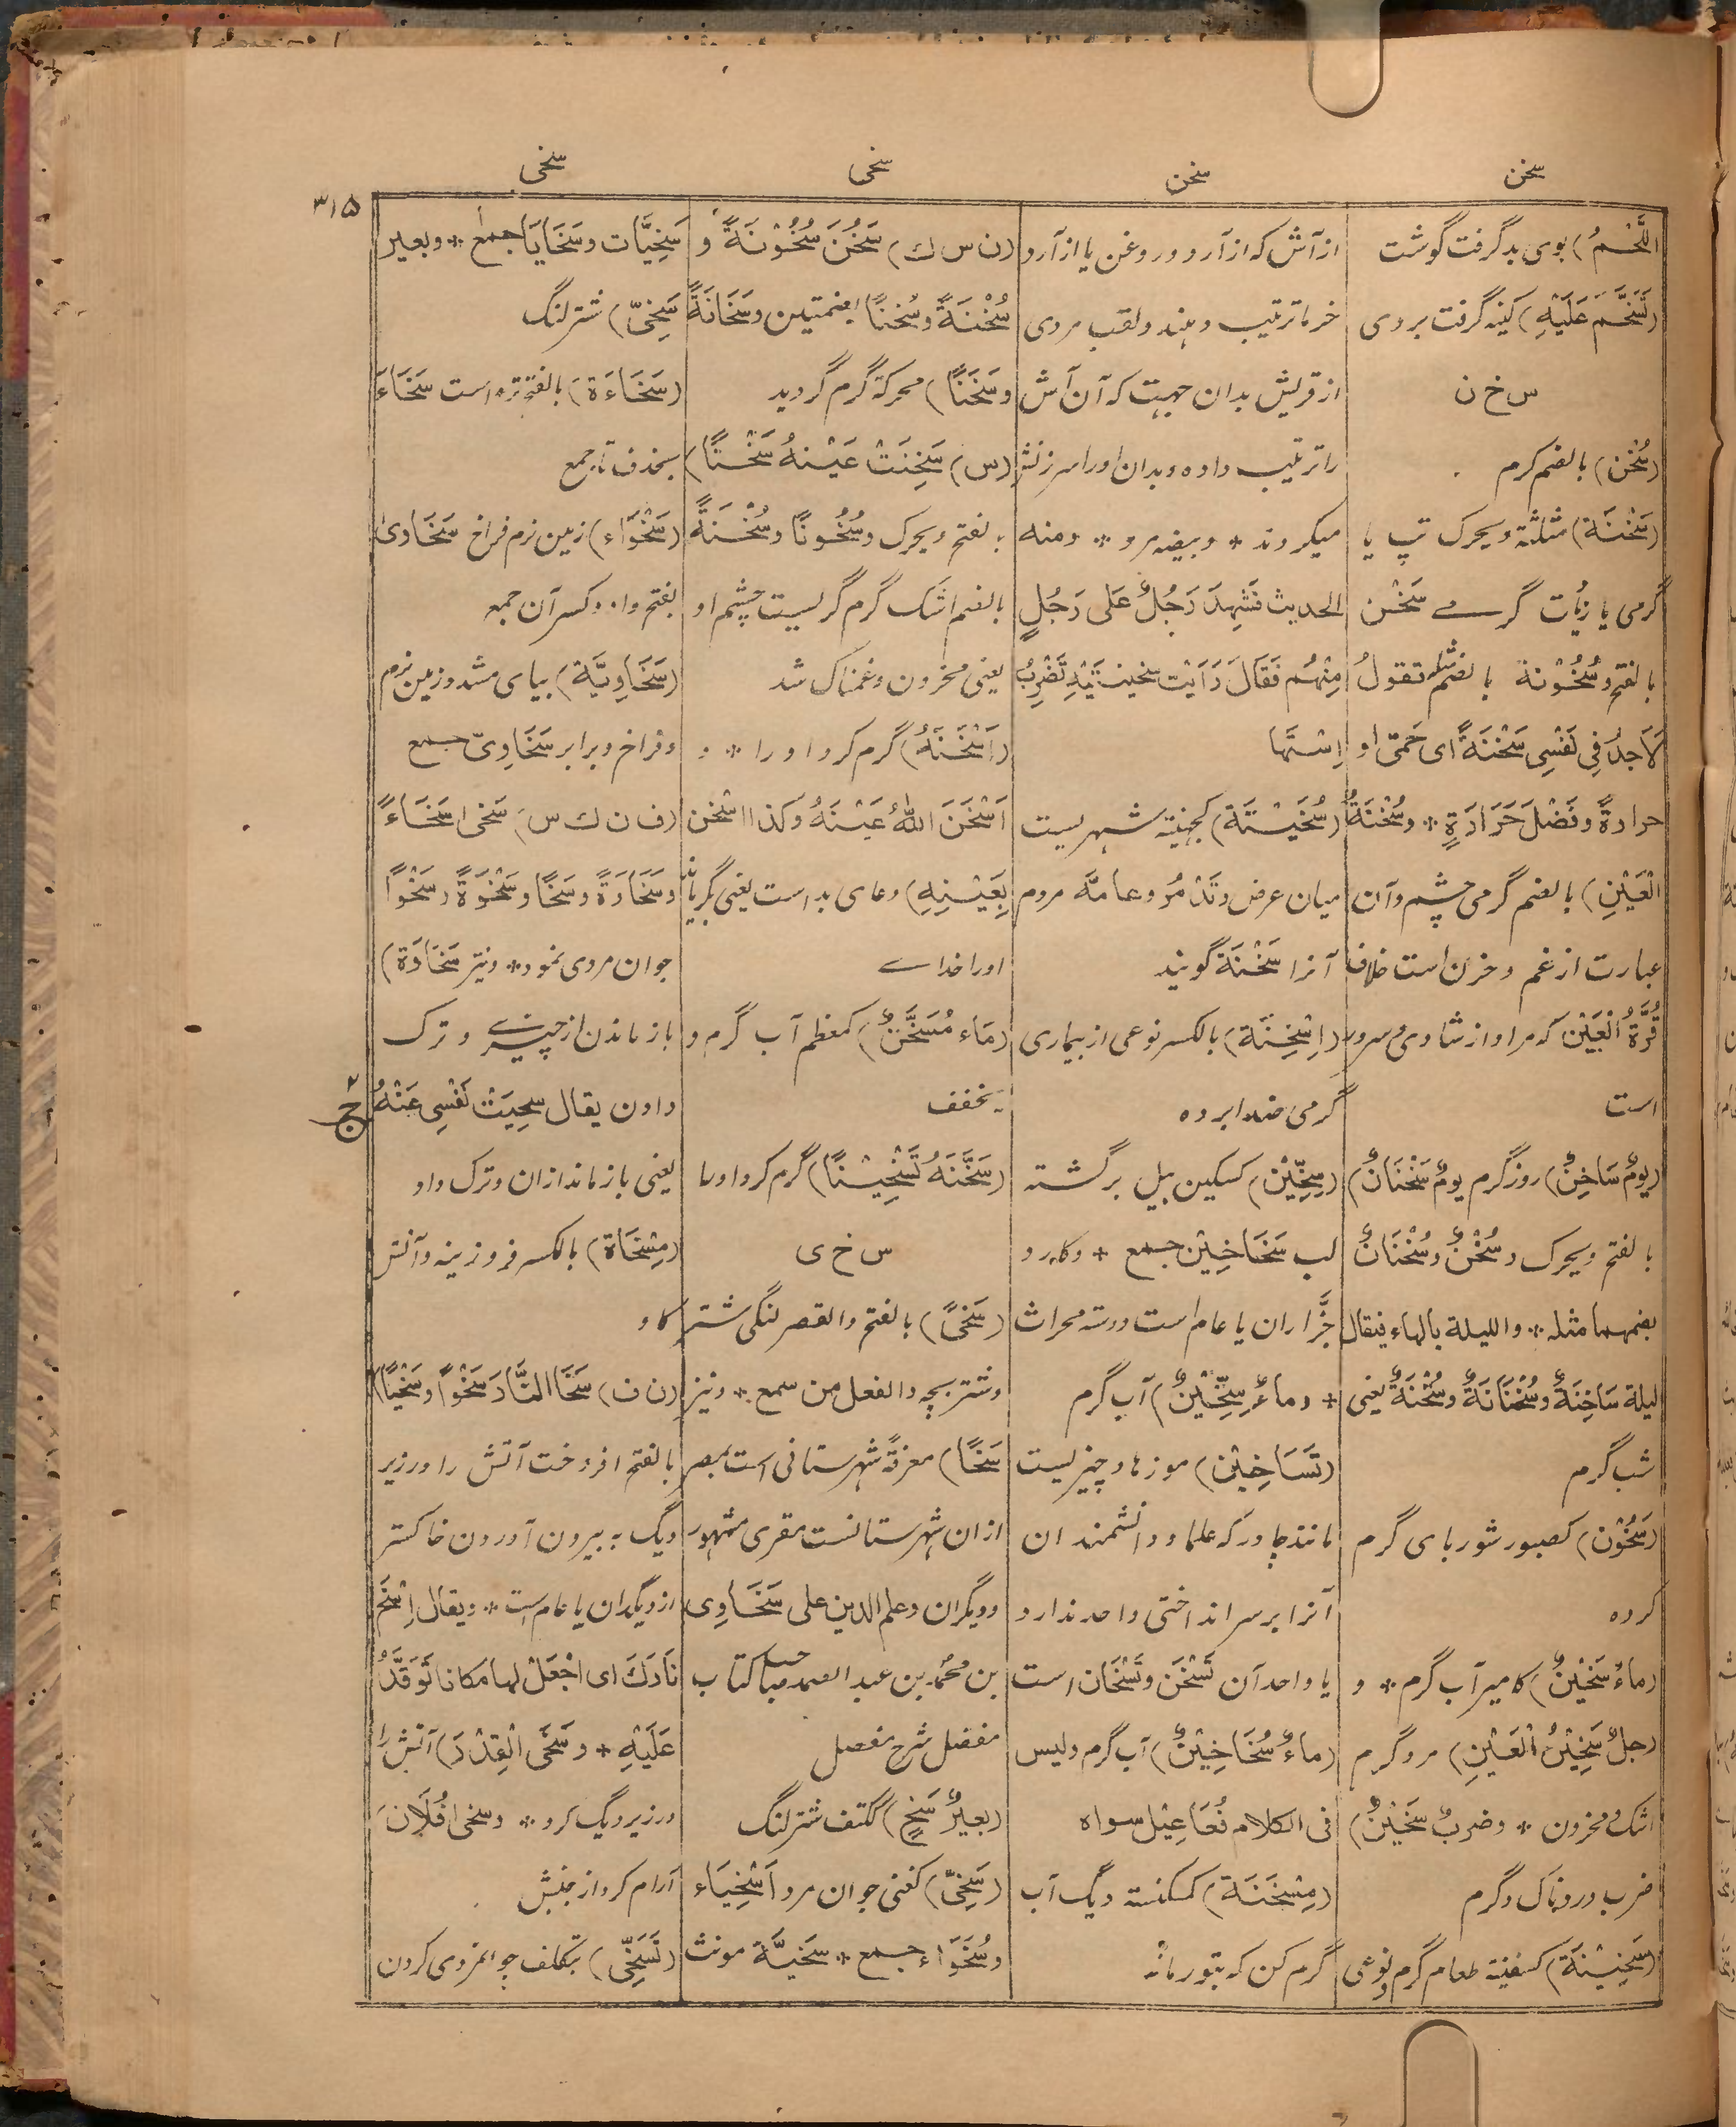 سخن
سخن
سخی
سخی
۳۱۵
اللَّحْمُ) بوی بد گرفت گوشت
(تَسَخَّمَ عَلَیْهِ) کینه گرفت بر وی
س خ ن
(سُخْن) بالضم گرم
(سَخْنَة) مثلثة ویحرک تپ یا
گرمی یا زیأت گرمے سَخْن
بالفتح وسُخُوْنة بالضم مثله تقولُ
لَاَجِدُ فِی نَفْسِی سَخْنَةً ای حَمیّ او
حرارةً وفَضْلَ حَرَارَةٍ * وسُخْنَةُ
الْعَیْنِ) بالضم گرمی چشم وآن
عبارت از غم وحزن است خلاف
قُرَّةُ الْعَیْن که مراد از شادی وسرور
است
(یومٌ سَاخِنٌ) روز گرم یومٌ سَخْنَانٌ
بالفتح ویحرک وسُخْنٌ وسُخْنَانٌ
بضمهما مثله * واللیلة بالهاء فیقال
لیلة سَاخِنَةٌ وسُخْنَانَةٌ وسُخْنَةٌ یعنی
شب گرم
(سَخُوْن) کصبور شوربای گرم
کرده
(ماءٌ سَخَیْنٌ) کامیر آب گرم * و
رجلٌ سَخِیْنُ الْعَیْنِ) مرد گرم
اشک محزون * وضربٌ سَخَیْنٌ)
ضرب دردناک وگرم
(سَخِیْنَة) کسفینة طعام گرم ونوعی
از آش که از آرد وروغن یا از آرد و
خرما ترتیب دهند ولقب مردی
از قریش بدان جهت که آن آش
را ترتیب داده وبدان اورا سرزنش
میکردند * وبیضه مرد * ومنه
الحدیث فَشَهِدَ رَجُلٌ عَلی رَجُلٍ
مِنْهُم فَقَالَ رَاَیْت سخینتَیْهِ تَضْرِبُ
اِسْتَها
(سُخَیْنَة) کجهینة شهریست
میان عرض وتَدْمُرُ وعامّه مردم
آنرا سَخْنَة گویند
(اِسْخِنَة) بالکسر نوعی از بیماری
گرمی ضد ابرده
(سِخِّیْن) کسکین بیل برگشته
لب سَخَاخِیْن جمع * وکارد و
جزّاران یا عام است ودسته محراث
* وماءٌ سِخِّیْنٌ) آب گرم
(تَسَاخِیْن) موزها وچیزیست
مانند چادر که علما ودانشمندان
آنرا بر سر انداختی واحد ندارد
یا واحد آن تَسْخَن وتَسْخَان است
(ماءٌ سُخَاخِیْنٌ) آب گرم ولیس
فی الکلام فُعَاعِیْل سواه
(مِسْخَنَة) کمکنسة دیگ آب
گرم کن که بتور ماند
(ن س ك) سَخُنَ سُخُوْنَةً و
سُخْنَةً وسُخنًا بضمتین وسَخَانَةً
وسَخَنًا) محرکة گرم گردید
(س) سَخِنَتْ عَیْنهُ سَخْنًا)
بالفتح ویحرک وسُخُونًا وسُخْنَةً
بالضم اشک گرم گریست چشم او
یعنی محزون وغمناک شد
(اَسْخَنَهُ) گرم کرد اورا * و
اَسْخَنَ اللهُ عَیْنَهُ وکذا اسْخن
بِعَیْنِهِ) دعای بد است یعنی بگریاند
اورا خداے
(مَاء مُسَخَّنٌ) کمعظم آب گرم و
یخفف
(سَخَّنَهُ تَسْخِیْنًا) گرم کرد اورا
س خ ی
(سَخًی) بالفتح والقصر لنگی شتر
وشتر بچه والفعل من سمع * ونیز
سَخَا) معرفةً شهرستانی است بمصر
ازان شهرستانست مقری مشهور
ودیگران وعلم الدین علی سَخَاوِی
بن محمد بن عبد الصمد صاحب کتاب
مفضل شرح مفصل
(بعیرٌ سَخٍ) ککتف شتر لنگ
(سَخِیّ) کغنی جوانمرد اَسْخِیَاء
وسُخَوَاء جمع * سَخیَّة مونث
سَخِیَّات وسَخَایَا جمع * وبعیر
سَخِیّ) شتر لنگ
(سَخَاءَة) بالفتح تره است سَخَاءَ
بحذف تا جمع
(سَخْوَاء) زمین نرم فراخ سَخَاوی
بفتح واو وکسر آن جمع
(سَخَاوِیَّة) بیای مشدد زمین نرم
وفراخ وبرابر سَخَاوِیّ جمع
(ف ن ك س) سَخی سَخَاءً
وسَخَاوَةً وسَخًا وسَخْوَةً وسَخْواً
جوانمردی نمود * ونیز سَخَاوَة)
باز ماندن از چیزے وترک
دادن یقال سخِیَتْ نَفْسِی عَنْهُ
یعنی باز ماند ازان وترک داد
(مِسْخَاة) بالکسر فروزینه وآتش
کاو
(ن ف) سَخَا النَّارَ سَخْواً وسَخْیًا)
بالفتح افروخت آتش را در زیر
دیگ به بیرون آوردن خاکستر
از دیگدان یا عام است * ویقال اِسْخَ
نَارَكَ ای اجْعَلْ لها مکانا تَوَقَّدُ
عَلَیْهِ * وسَخَی الْقِدْرَ) آتش را
در زیر دیگ کرد * وسخی فُلَانٌ
آرام کرد از جنبش
(تَسَخّی) بتکلف جوانمردی کردن